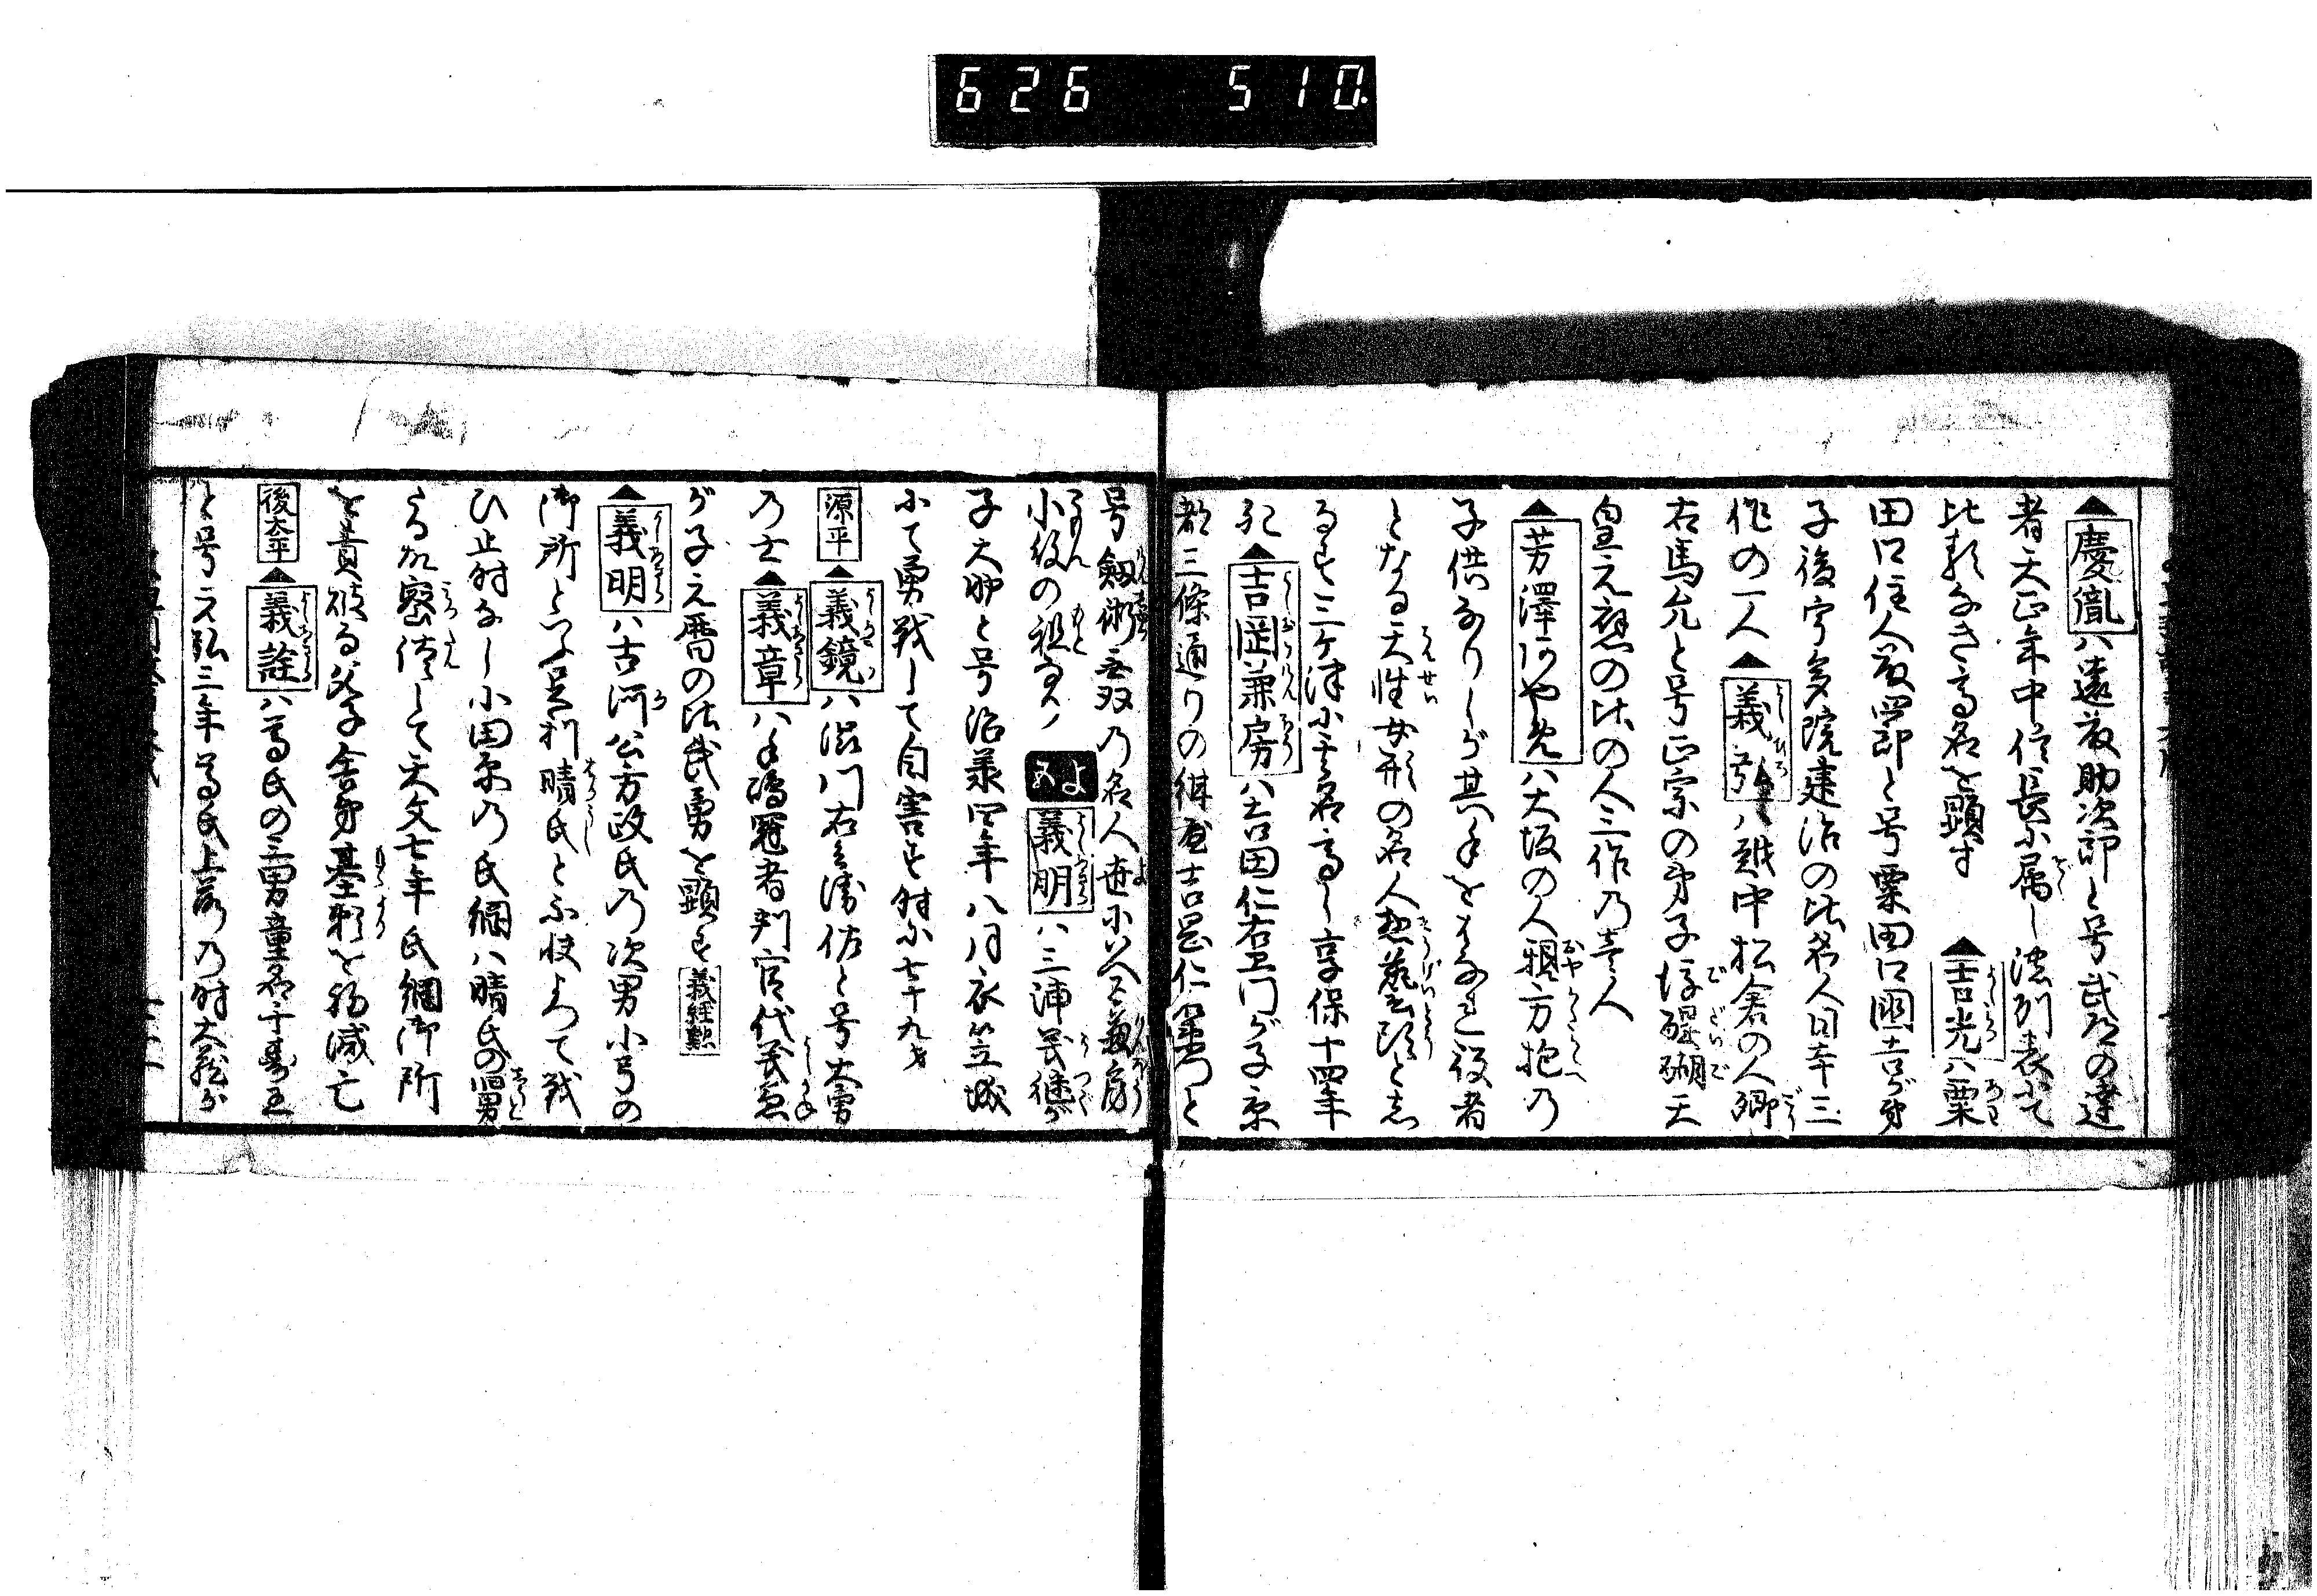 626 510.
▲慶胤ハ遠藤助次郎と号武芸の達
者天正年中信長に属し濃列表にて
比類なき高名を顕す ▲吉光ハ粟
田口住人藤四郎と号粟田口國吉が弟
子後宇多院建治の比名人日本三
作の一人 ▲義弘ハ越中松倉の人郷
右馬允と号正宗の弟子後醍醐天
皇元應の比の人三作乃壱人
▲芳澤あやめハ大坂の人親方抱乃
子供なりしが其手をはなれ役者
となる天性女形の名人惣藝頭と志
るす三ケ津に其名高し享保十四年
死 ▲吉岡兼房ハ吉田仁右卫门が子京
都三條通りの紺屋吉岡仁右衛门と
号劔術無双乃名人世に以て兼房
小紋の祖
よあ
義明ハ三浦義継が
子大助と号治承四年八月衣笠城
にて勇戦して自害す時に七十九才
源平 ▲義鏡ハ渋川右兵衛佐と号大勇
乃士 ▲義章ハ手嶋冠者判官代義兼
が子元暦の比武勇を顕す 義経勲
▲義明ハ古河公方政氏乃次男小弓の
御所といふ足利晴氏と不快よつて戦
ひ止時なし小田原乃氏綱ハ晴氏の舅
たる故密諜して天文七年氏綱御所
を責破る父子舎弟基頼を初滅亡
後太平 ▲義詮ハ尊氏の三男童名千壽王
と号元弘三年尊氏上洛乃時大蔵が